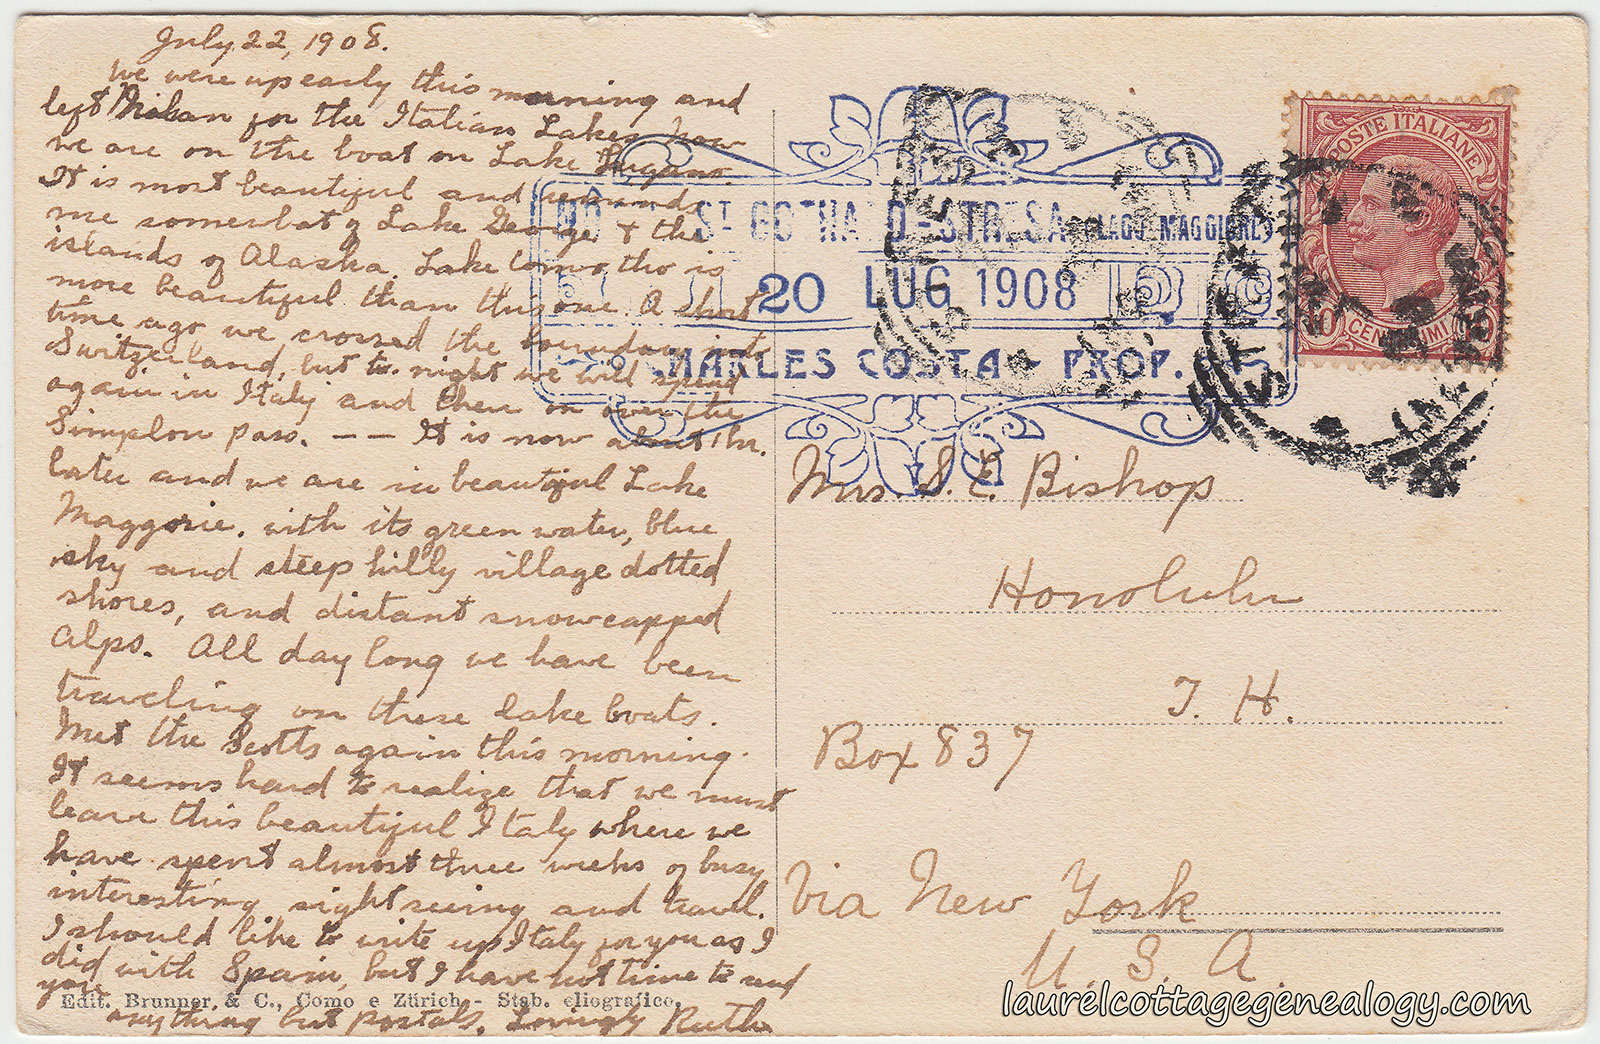 July 22, 1908.
We were up early this morning and
left Milan for the Italian Lakes, now
we are on the boat on Lake Lugano.
It is most beautiful and reminds
me somewhat of Lake George & the
islands of Alaska. Lake Como tho is
more beautiful than this one. A short
time ago we crossed the boundary into
Switzerland, but to-night we will spend
again in Italy and then on over the
Simplon pass. — — It is now about 1 hr.
later and we are in beautiful Lake
Maggorie. with its green water, blue
sky and steep hilly village dotted
shores, and distant snowcapped
Alps. All day long we have been
traveling on these lake boats.
Met the Scotts again this morning.
It seems hard to realize that we must
leave this beautiful Italy where we
have spent almost three weeks of busy
interesting sight seeing and travel.
I should like to write up Italy for you as I
did with Spain, but I have not time to send
you
anything but postals. Lovingly Ruth
Edit. Brunner & C., Como e Zürich - Stab. eliografico.
ST GOTHARD - STRESA (LAGO MAGGIORE)
20 LUG 1908
CHARLES COSTA - PROP.
POSTE ITALIANE
10 CENTESIMI 10
Mrs. S. E. Bishop
Honolulu
T. H.
Box 837
Via New York
U. S. A.
laurelcottagegenealogy.com